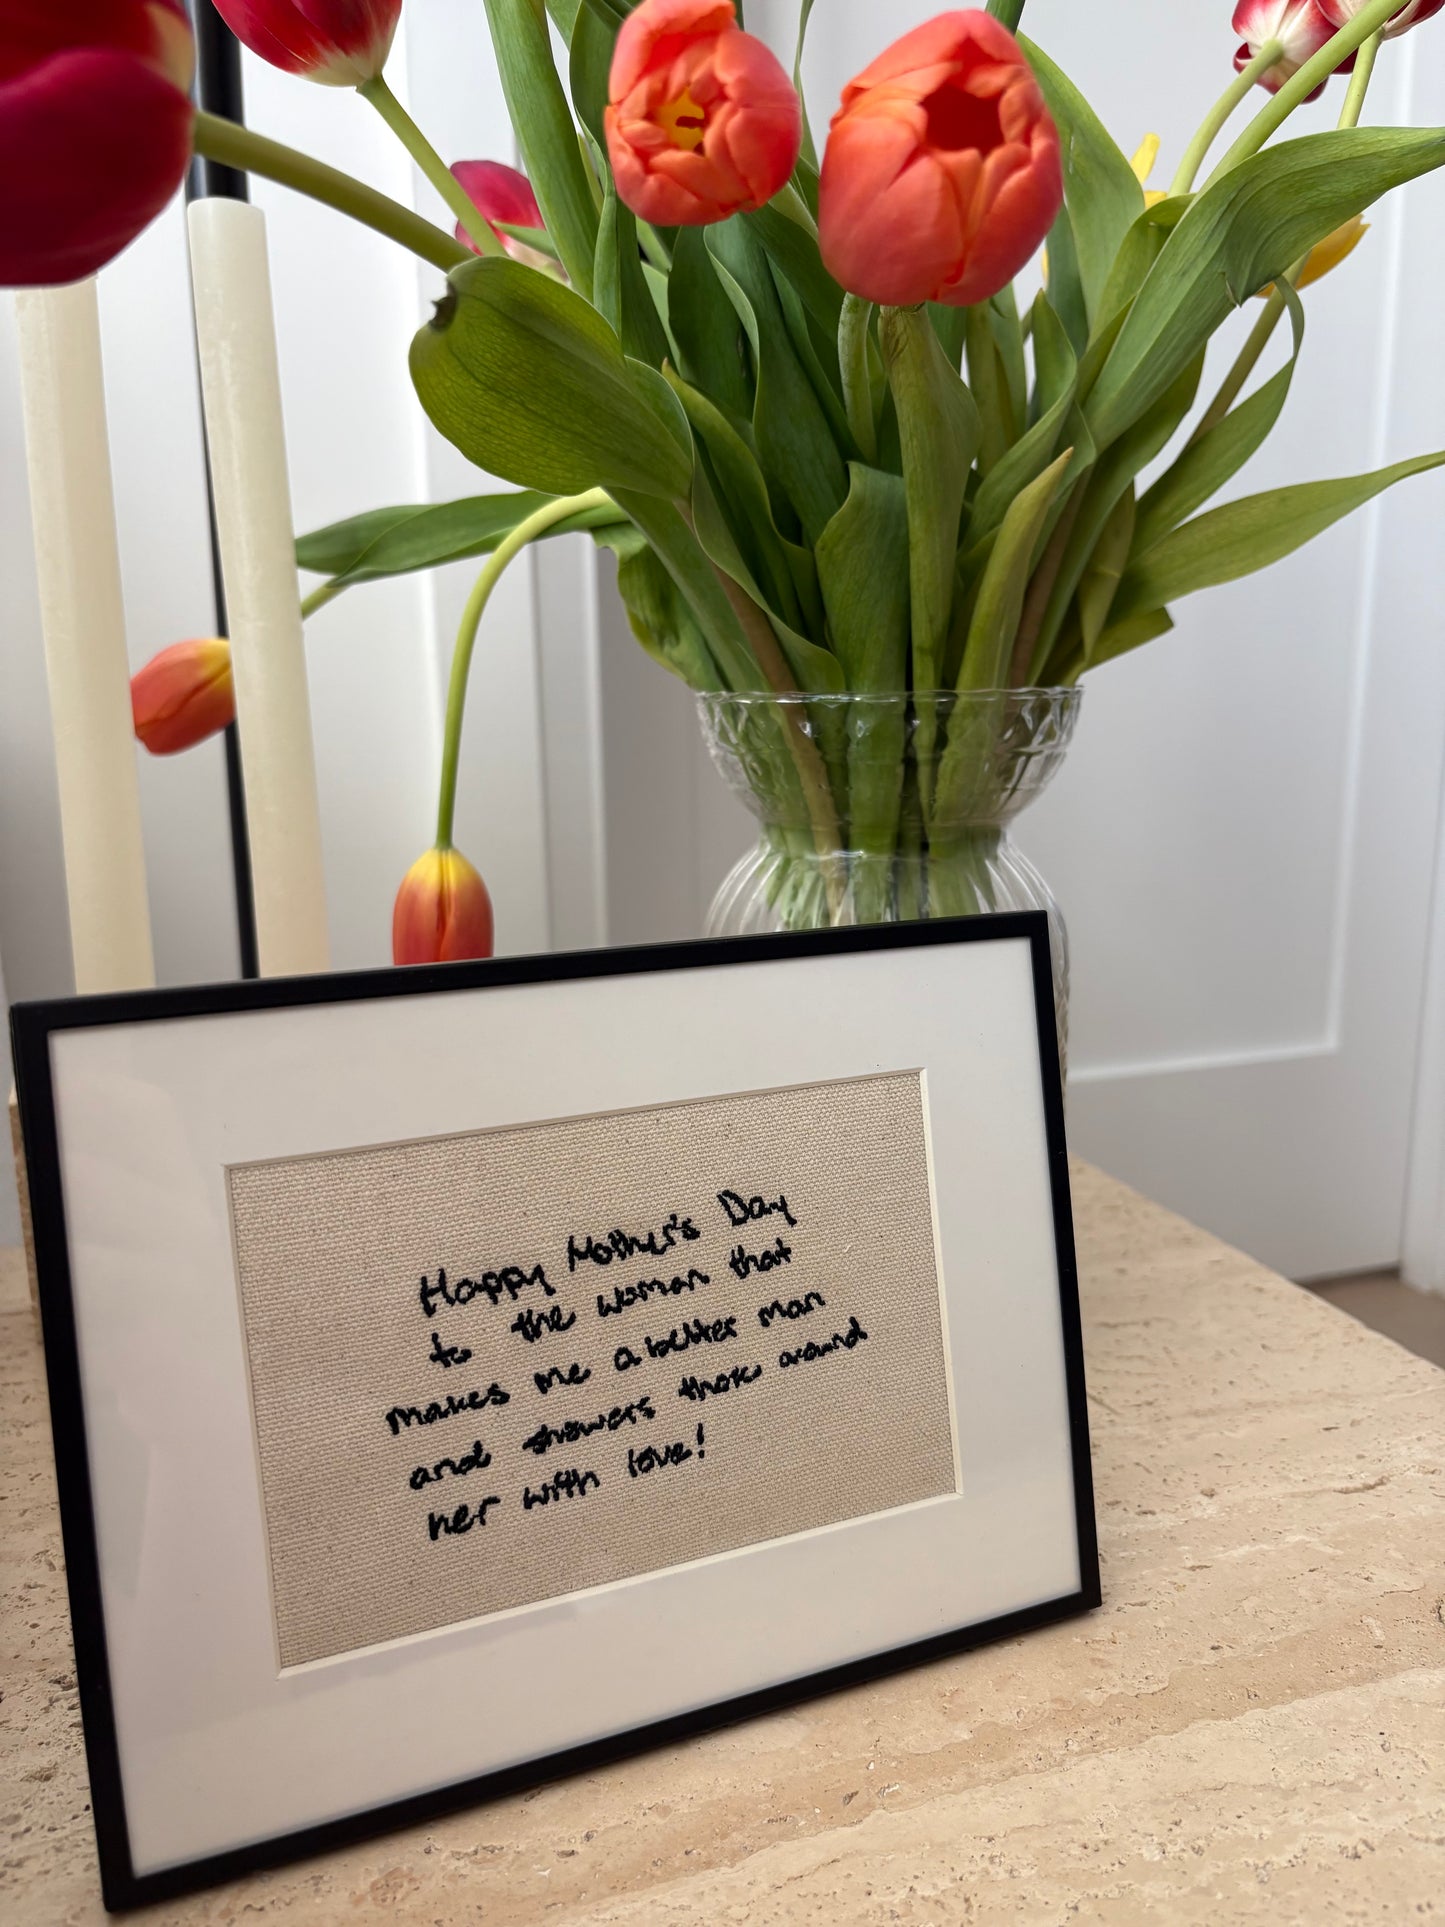 Happy Mother's Day
to the woman that
makes me a better man
and showers those around
her with love!